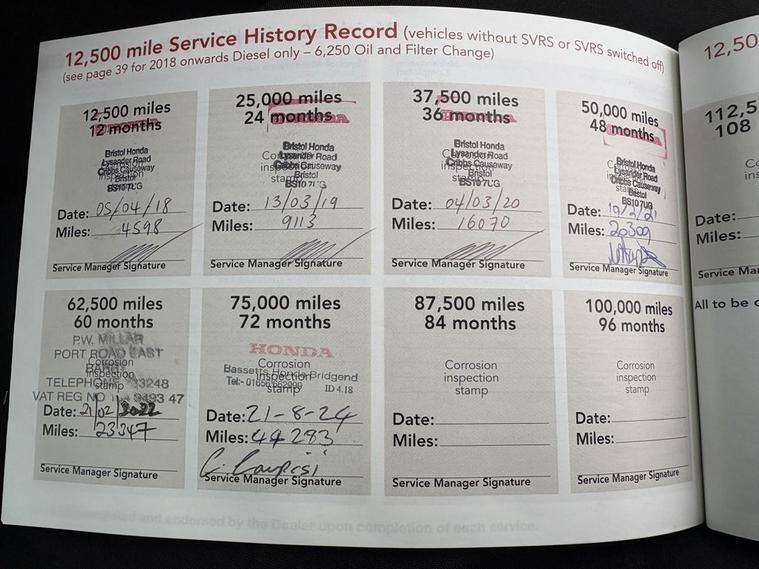 12,500 mile Service History Record (vehicles without SVRS or SVRS switched off)
(see page 39 for 2018 onwards Diesel only – 6,250 Oil and Filter Change)
12,500 miles
12 months
Bristol Honda
Lysander Road
Cribbs Causeway
Bristol
BS10 7UG
Date: 05/04/18
Miles: 4598
Service Manager Signature
25,000 miles
24 months
Bristol Honda
Lysander Road
Cribbs Causeway
Bristol
BS10 7UG
Date: 13/03/19
Miles: 9113
Service Manager Signature
37,500 miles
36 months
Bristol Honda
Lysander Road
Cribbs Causeway
Bristol
BS10 7UG
Date: 04/03/20
Miles: 16070
Service Manager Signature
50,000 miles
48 months
Bristol Honda
Lysander Road
Cribbs Causeway
Bristol
BS10 7UG
Date:
Miles: 20309
Service Manager Signature
62,500 miles
60 months
P.W. MILLAR
PORT ROAD EAST
BARRY
Corrosion
inspection
stamp
TELEPHONE 33248
VAT REG NO 9493 47
Date: 21/02/2022
Miles: 23347
Service Manager Signature
75,000 miles
72 months
HONDA
Corrosion
inspection
stamp
Bassetts Honda Bridgend
Tel:- 01656
ID 4.18
Date: 21-8-24
Miles: 44293
Service Manager Signature
87,500 miles
84 months
Corrosion
inspection
stamp
Date:
Miles:
Service Manager Signature
100,000 miles
96 months
Corrosion
inspection
stamp
Date:
Miles:
Service Manager Signature
12,50
112,5
108
Co
ins
Date:
Miles:
Service Ma
All to be c